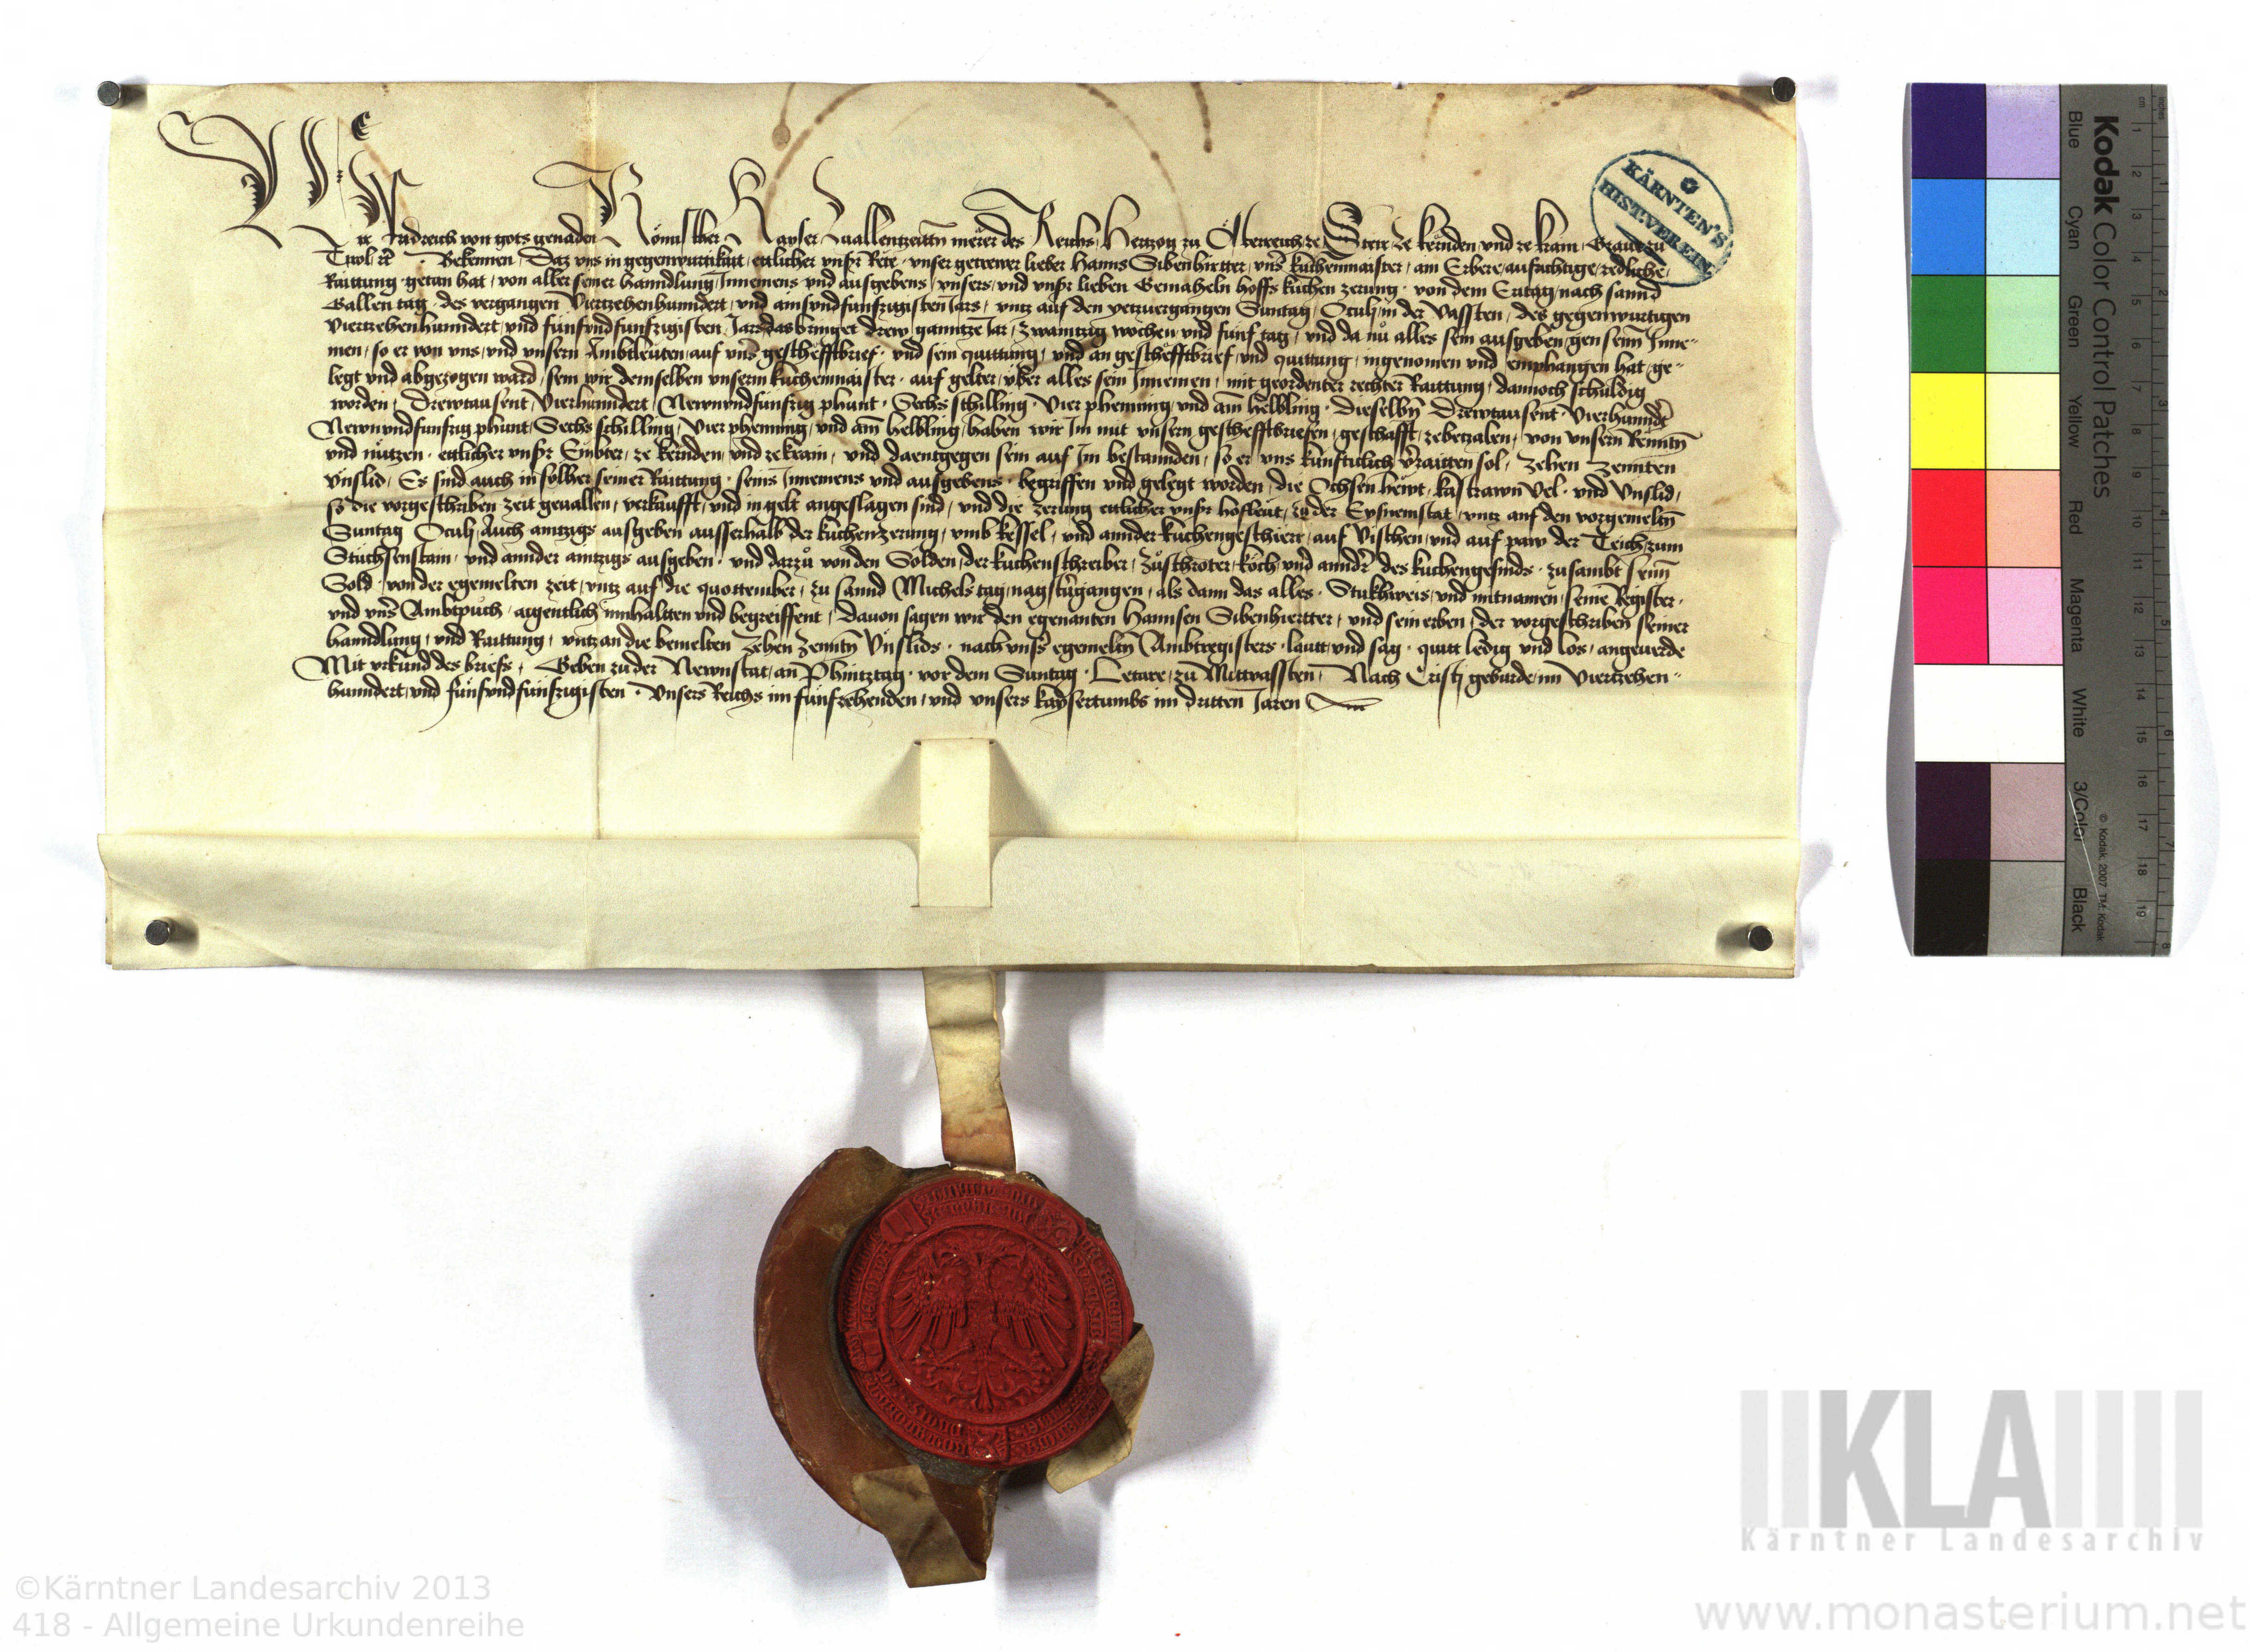 Wir Fridreich von gots genaden Römischer Kayser zuallenntzeitn merer des Reichs Hertzog zu Österreich ze Steir ze kernden und ze krain Graue zu
Tirol etc Bekennen Daz vns in gegenwurtikait ettlicher vnsr Rete vnser getrewer lieber Hanns Sibenhirtter vnser kuchenmaister ain Erbere aufrichtige redliche
Raittung getan hat von aller seiner hanndlung Innemens vnd ausgebens vnsers vnd vnsr lieben Gemaheln hoffs kuchen zerung von dem Eritag nach sannd
Gallen tag des vergangen Viertzehenhundert vnd ainsvndfunfzigisten Jars vntz auf den yetzuergangen Suntag Oculi in der Vassten des gegenwurtigen
Viertzehenhunndert vnd funfvndfunfzigisten Jars das bringet drew ganntze Jar zwaintzig wochen vnd funf tag vnd da nu alles sein ausgeben gen seinn Inne-
men so er von vns vnd vnsern Ambtleuten auf vnser gescheftbrief vnd sein quittung vnd an gescheftbrief vnd quittung ingenomen vnd emphangen hat ge-
legt vnd abgezogen ward sein wir demselben vnserm kuchenmaister auf gelter über alles sein Innemen mit geordenter rechter Raittung dannoch schuldig
worden Drewtausent Vierhunndert Newnvndfunfzig phunt Sechs schilling Vier phenning vnd ain helbling Dieselbn Drewtausent Vierhunndert
Newnvndfunfzig phunt Sechs schilling Vier phenning vnd ain helbling haben wir Im mit vnsern geschefftbriefen geschafft zebetzalen von vnsern Renntn
vnd nützen ettlicher vnsr Embter ze kernden vnd ze krain vnd daentgegen sein auf Im bestannden so er vns kunfticlich verraitten sol Zehen Zennten
vnslid Es sind auch in solher seiner Raittung seins Innemens vnd ausgebens begriffen vnd gelegt worden die Ochsen hewt kastrawn Vel vnd Vnslid
so die vorgeschriben zeit geuallen verkaufft vnd in gelt angeslagen sind vnd die zerung ettlicher vnsr hofleut zu der Eysneinstat vntz auf den vorgemeltn
Suntag Oculi Auch aintzigs ausgeben ausserhalb der kuchenzerung vmb kessel vnd annder kuchengeschierr auf Vischen vnd auf paw der Teich zum
Stuchsenstain vnd annder aintzigs ausgeben vnd darzu von den Solden der kuchenschreiber Zuschroter koch vnd anndr des kuchengesinds zusambt seinn
Sold von der egemelten zeit vntz auf die quottember zu sannd Michels tag nagstuergangen als dann das alles Stukhweis vnd mitnamen seine Register
vnd vnser Ambtpuch aigentlich innhaltten vnd begreiffent Dauon sagen wir den egenanten Hannsen Sibenhirtter vnd sein erben der vorgeschriben seiner
hanndlung vnd Raittung vntz an die bemelten Zehen Zenntn Vnslids nach vnsrs egemeltn Ambtregisters lautt vnd sag quitt ledig vnd los angeuerde
Mit vrkund des briefs Geben zu der Newnstat an Phintztag vor dem Suntag Letare zu Mittuassten Nach Cristi geburde im Viertzehen-
hunndert vnd funfvndfunfzigisten Vnsers Reichs im funfzehenden vnd vnsers kaysertumbs im dritten Jaren
KÄRNTEN'S
HIST. VEREIN
Kodak Color Control Patches
Blue Cyan Green Yellow Red Magenta White 3/Color Black
© Kodak, 2007 TM: Kodak
cm 1 2 3 4 5 6 7 8 9 10 11 12 13 14 15 16 17 18 19
inches 1 2 3 4 5 6 7 8
KLA
Kärntner Landesarchiv
©Kärntner Landesarchiv 2013
418 - Allgemeine Urkundenreihe
www.monasterium.net